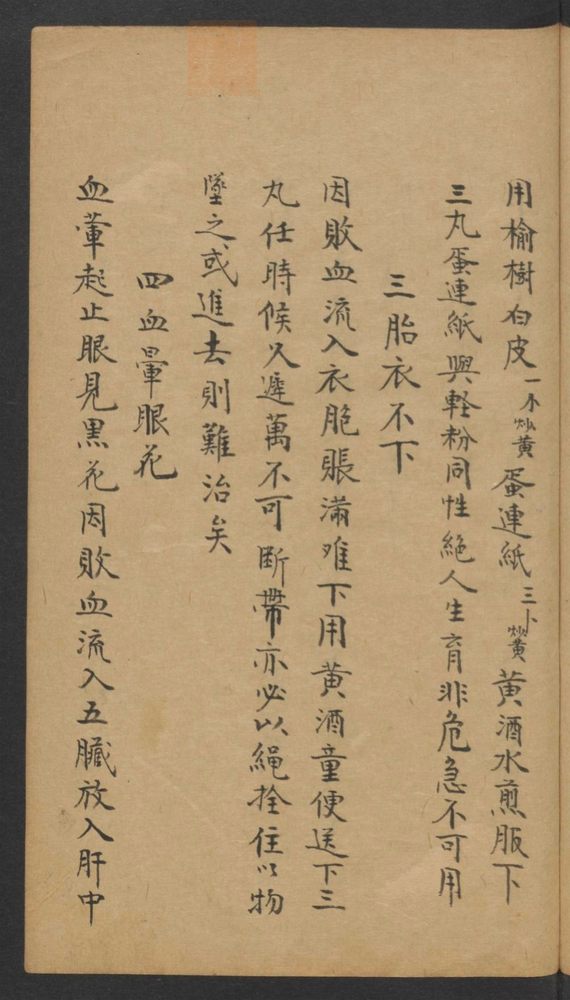 用榆樹白皮一不炒黄蛋連紙三卜炒黄黄酒水煎服下
三丸蛋連紙與軽粉同性絶人生育非危急不可用
三胎衣不下
因敗血流入衣胞脹滿难下用黄酒童便送下三
丸任時候久遲萬不可断帶亦必以繩拴住以物
墜之或進去則難治矣
四血暈眼花
血暈起止眼見黑花因敗血流入五臓放入肝中